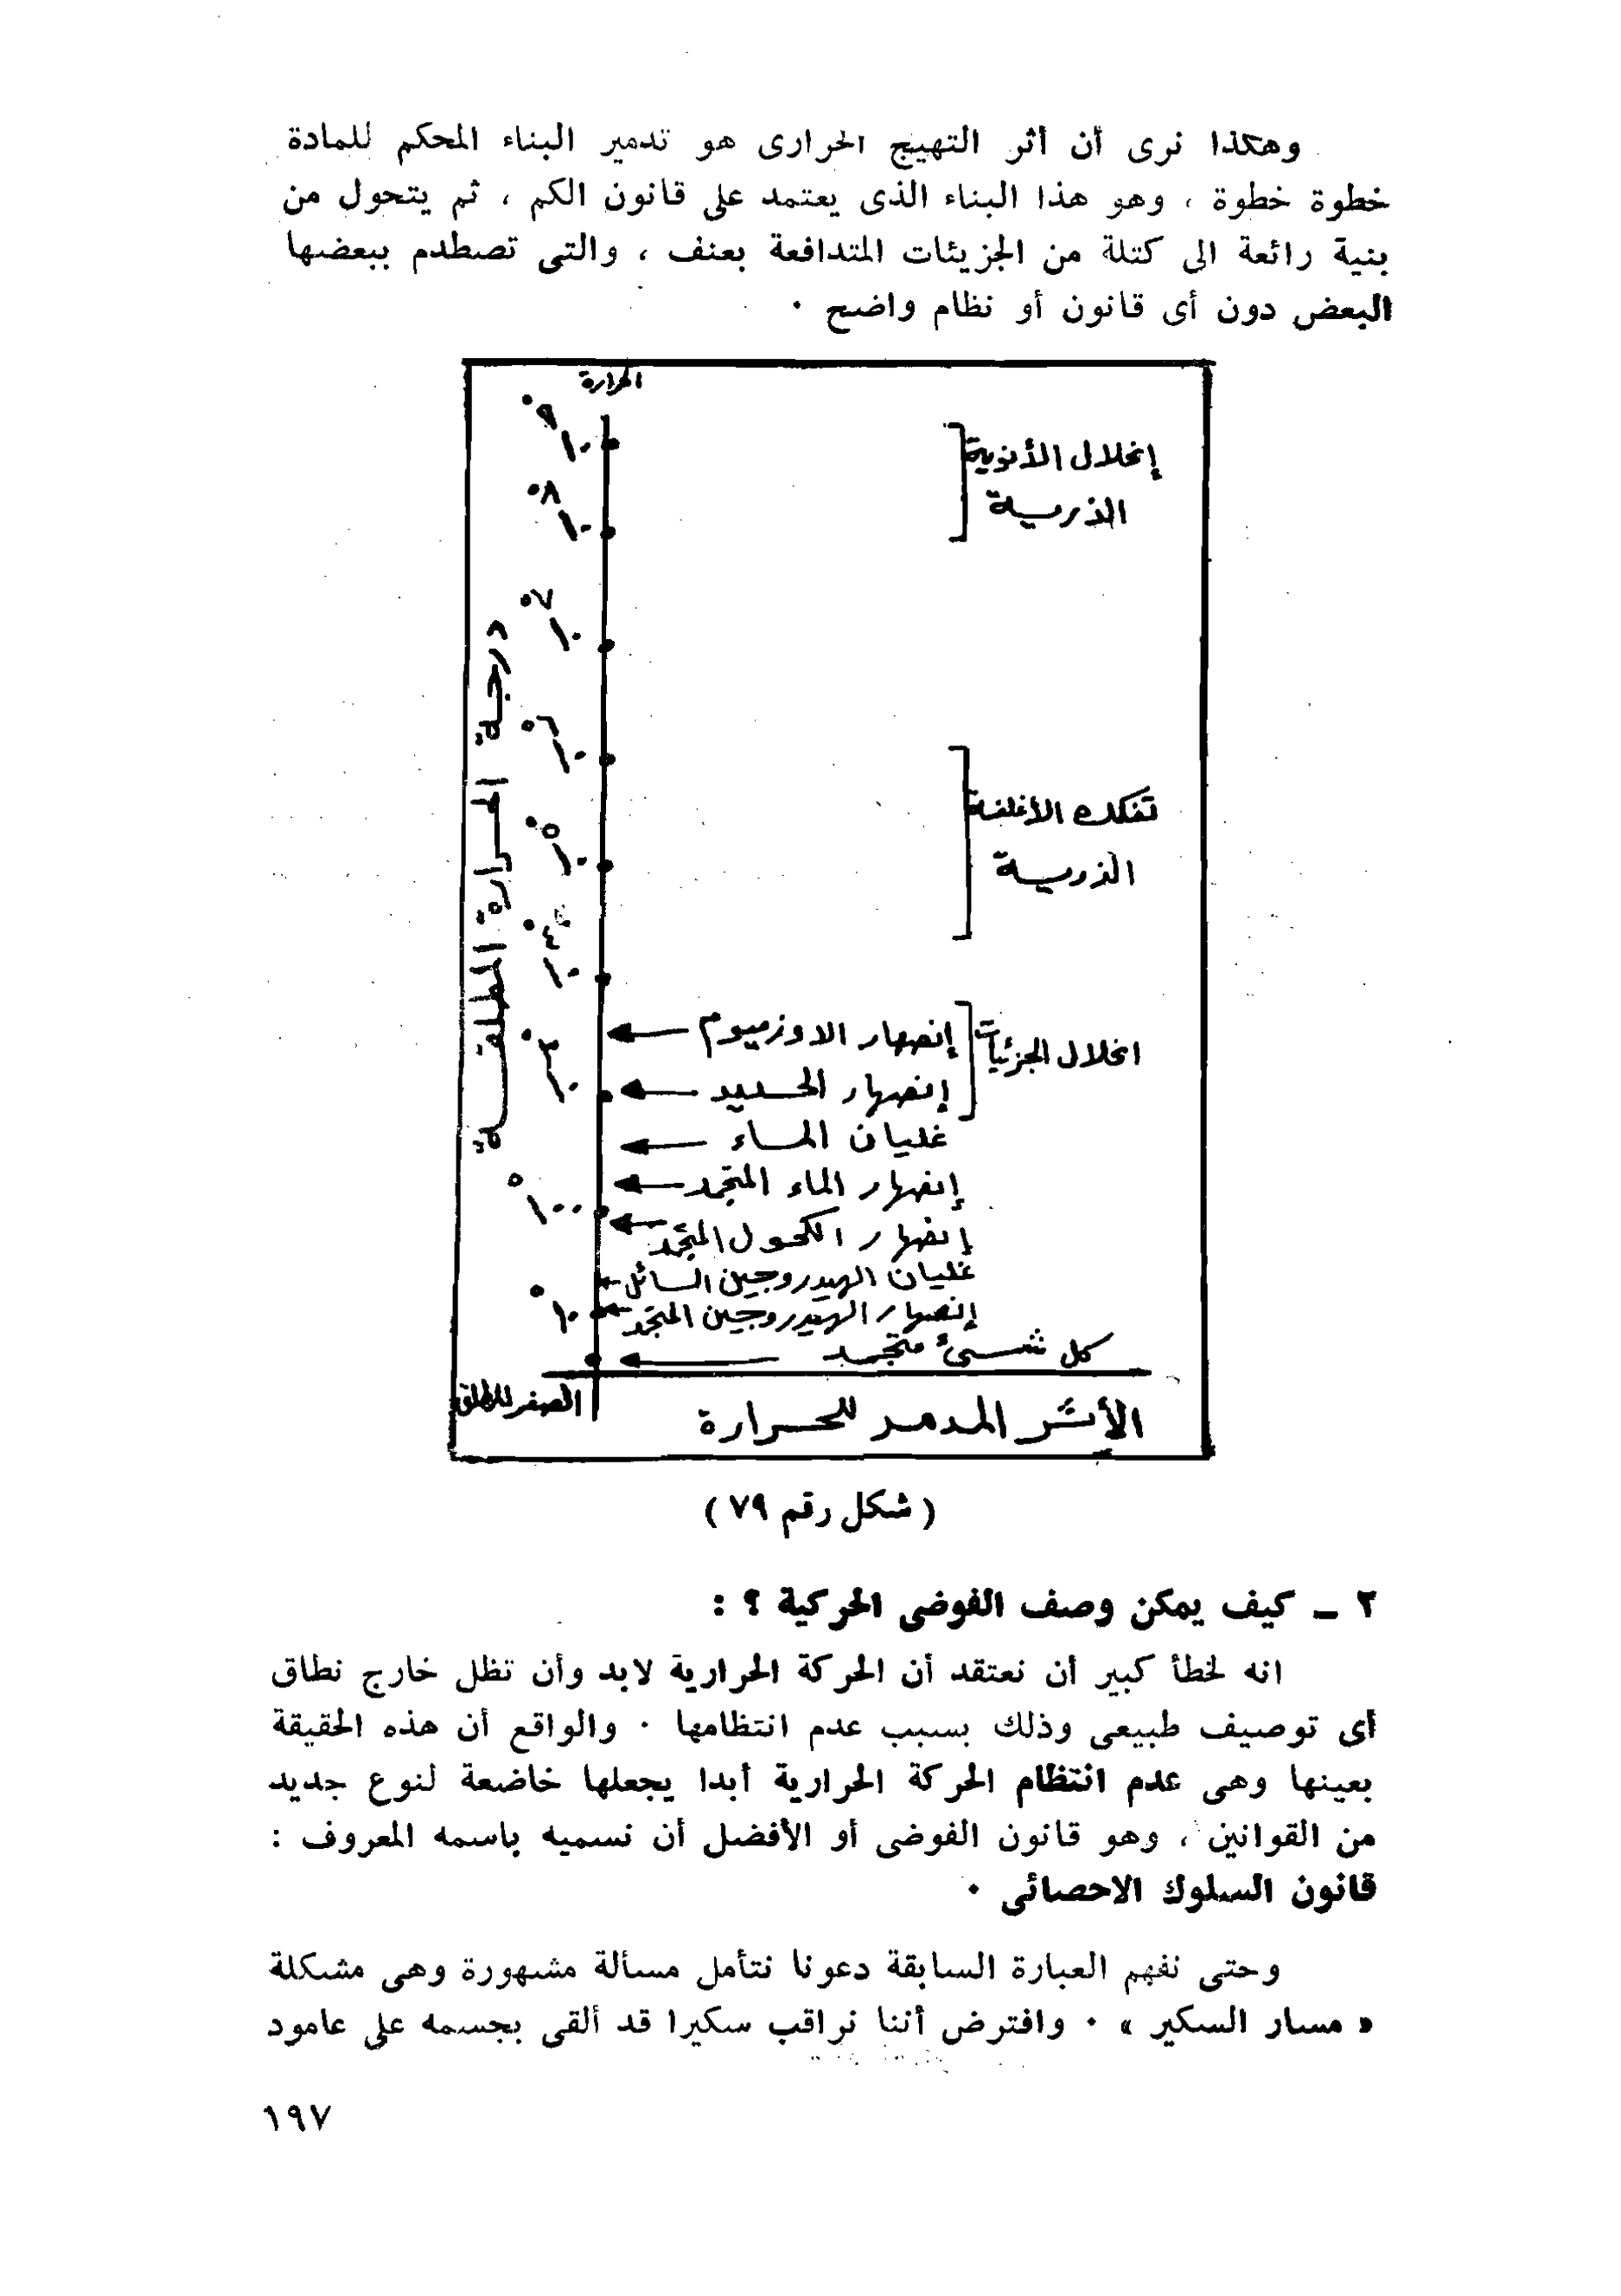 وهكذا نرى أن أثر التهيج الحرارى هو تدمير البناء المحكم للمادة
خطوة خطوة ، وهو هذا البناء الذى يعتمد على قانون الكم ، ثم يتحول من
بنية رائعة الى كتلة من الجزيئات المتدافعة بعنف ، والتى تصطدم ببعضها
البعض دون أى قانون أو نظام واضح ٠
الحرارة
١٠ ٩°
إنحلال الأنوية
الذرية
١٠ ٨°
١٠ ٧°
١٠ ٦°
درجة الحرارة المطلقة
تفكك الأغلفة
الذرية
١٠ ٥°
إنصهار الاوزميوم
انحلال الجزئيات
١٠ ٣°
إنصهار الحديد
غليان الماء
إنصهار الماء المتجمد
١٠٠°
إنصهار الكحول المتجمد
غليان الهيدروجين السائل
١٠°
إنصهار الهيدروجين المتجمد
كل شىء متجمد
الصفر المطلق
الأثر المدمر للحرارة
( شكل رقم ٧٩ )
٢ ــ كيف يمكن وصف الفوضى الحركية ؟ :
انه لخطأ كبير أن نعتقد أن الحركة الحرارية لابد وأن تظل خارج نطاق
أى توصيف طبيعى وذلك بسبب عدم انتظامها ٠ والواقع أن هذه الحقيقة
بعينها وهى عدم انتظام الحركة الحرارية أبدا يجعلها خاضعة لنوع جديد
من القوانين ، وهو قانون الفوضى أو الأفضل أن نسميه باسمه المعروف :
قانون السلوك الاحصائى ٠
وحتى نفهم العبارة السابقة دعونا نتأمل مسألة مشهورة وهى مشكلة
« مسار السكير » ٠ وافترض أننا نراقب سكيرا قد ألقى بجسمه على عامود
١٩٧